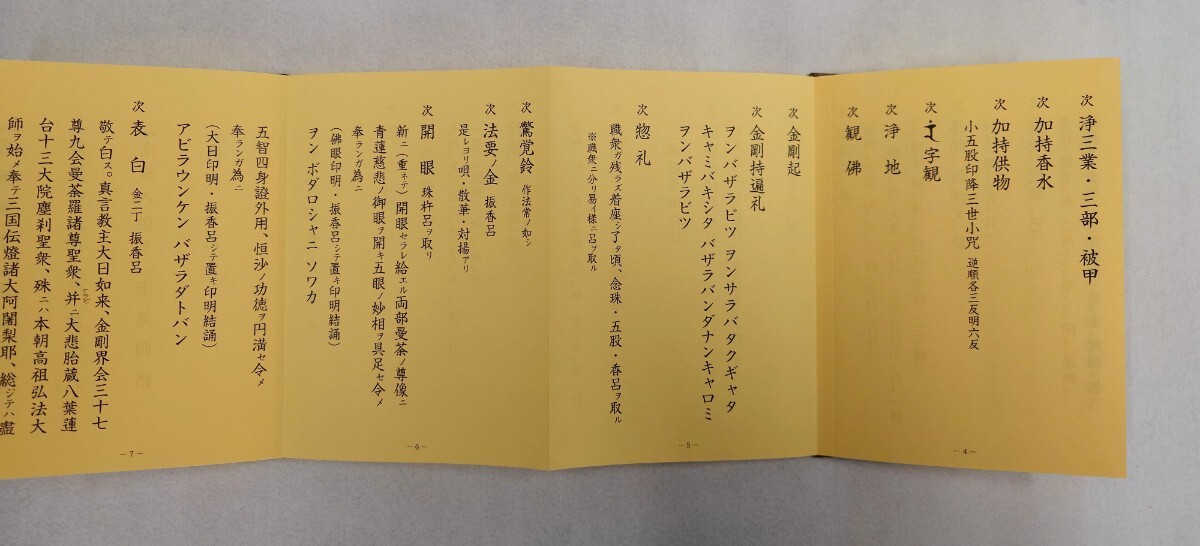 次 浄三業・三部・被甲
次 加持香水
次 加持供物
小五股印降三世小咒 逆順各三反明六反
次 字観
次 浄地
次 観佛
－4－
次 金剛起
次 金剛持遍礼
ヲンバザラビツ ヲンサラバタクギャタ
キャミバキシタ バザラバンダナンキャロミ
ヲンバザラビツ
次 惣礼
職衆ガ残ラズ着座シ了タ頃、念珠・五股・香呂ヲ取ル
※職衆ニ分リ易イ様ニ呂ヲ取ル
－5－
次 驚覚鈴 作法常ノ如シ
次 法要ノ金 振香呂
是レヨリ唄・散華・対揚アリ
次 開眼 珠杵呂ヲ取リ
新ニ(重ネテ)開眼セラレ給エル両部曼荼ノ尊像ニ
青蓮慈悲ノ御眼ヲ開キ五眼ノ妙相ヲ具足セ令メ
奉ランガ為ニ
(佛眼印明・振香呂シテ置キ印明結誦)
ヲン ボダロシャニ ソワカ
－6－
五智四身證外用、恒沙ノ功徳ヲ円満セ令メ
奉ランガ為ニ
(大日印明・振香呂シテ置キ印明結誦)
アビラウンケン バザラダトバン
次 表白 金二丁 振香呂
敬テ白ス。真言教主大日如来、金剛界会三十七
尊九会曼荼羅諸尊聖衆、并ニ大悲胎蔵八葉蓮
台十三大院塵刹聖衆、殊ニハ本朝高祖弘法大
師ヲ始メ奉テ三国伝燈諸大阿闍梨耶、総ジテハ盡
－7－